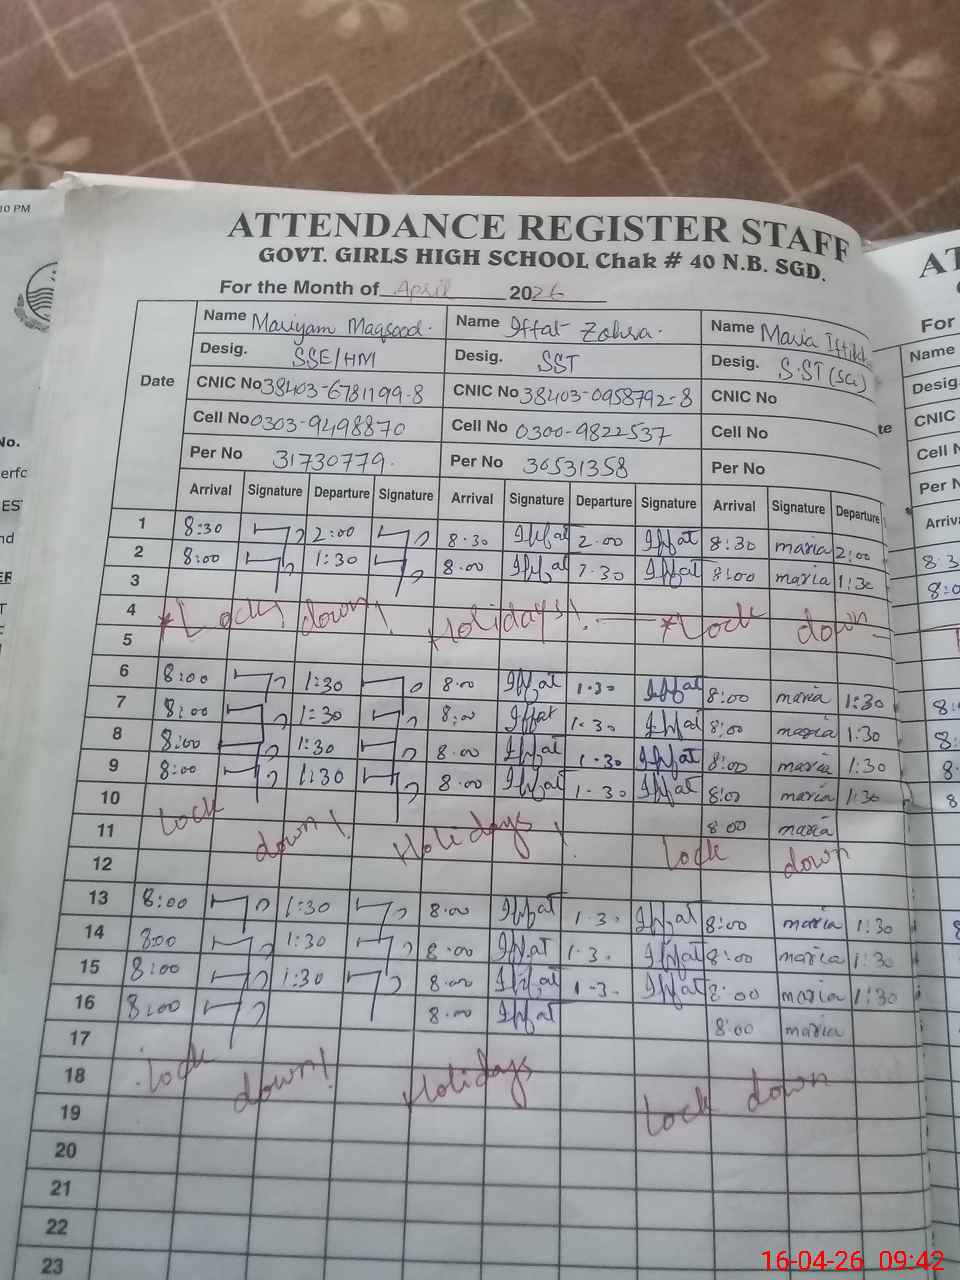 10 PM
ATTENDANCE REGISTER STAFF
GOVT. GIRLS HIGH SCHOOL Chak # 40 N.B. SGD.
For the Month of April 2026
Date
Name Mariyam Maqsood. Name Iffat Zohra. Name Maria
Desig. SSE/HM Desig. SST Desig. S.ST (Sci)
CNIC No 38403-6781199-8 CNIC No 38403-0958792-8 CNIC No
Cell No 0303-9498870 Cell No 0300-9822537 Cell No
Per No 31730779. Per No 30531358 Per No
Arrival Signature Departure Signature Arrival Signature Departure Signature Arrival Signature Departure
1 8:30 2:00 8.30 Iffat 2.00 Iffat 8:30 maria 2:00
2 8:00 1:30 8.00 Iffat 1.30 Iffat 8:00 maria 1:30
3
4 *Lock down! Holidays! *Lock down
5
6 8:00 1:30 8.00 Iffat 1.30 Iffat 8:00 maria 1:30
7 8:00 1:30 8:00 Iffat 1.30 Iffat 8:00 maria 1:30
8 8:00 1:30 8.00 Iffat 1.30 Iffat 8:00 maria 1:30
9 8:00 1:30 8.00 Iffat 1.30 Iffat 8:00 maria 1:30
10 8:00 maria
11 Lock down! Holidays! Lock down
12
13 8:00 1:30 8.00 Iffat 1.30 Iffat 8:00 maria 1:30
14 8:00 1:30 8.00 Iffat 1.3. Iffat 8:00 maria 1:30
15 8:00 1:30 8.00 Iffat 1.3. Iffat 8:00 maria 1:30
16 8:00 8.00 Iffat 8:00 maria
17
18 Lock down! Holidays Lock down
19
20
21
22
23
No.
For
Name
Desig.
CNIC
Cell N
Per N
Arriva
16-04-26 09:42